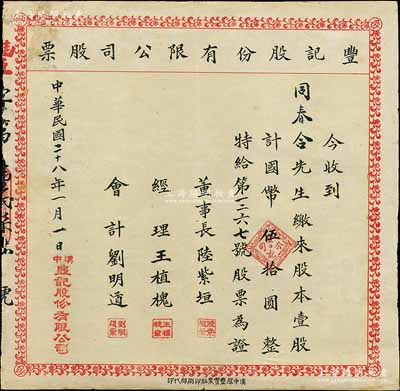 豐記股份有限公司股票
今收到
同春合先生繳來股本壹股
計國幣伍拾圓整
特給第一三六七號股票為證
董事長陸紫垣
經理王植槐
會計劉明道
中華民國二十八年一月一日
漢中豐記股份有限公司